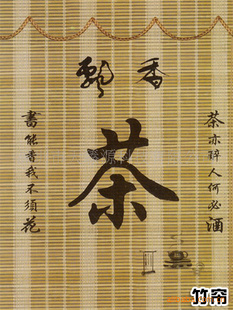 飘香
茶
茶亦醉人何必酒
书能香我不须花
竹帘